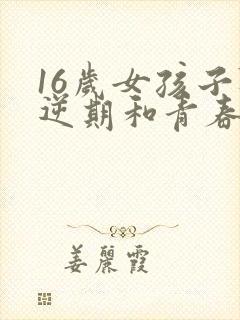 16歲女孩子
逆期和青春
姜麗霞